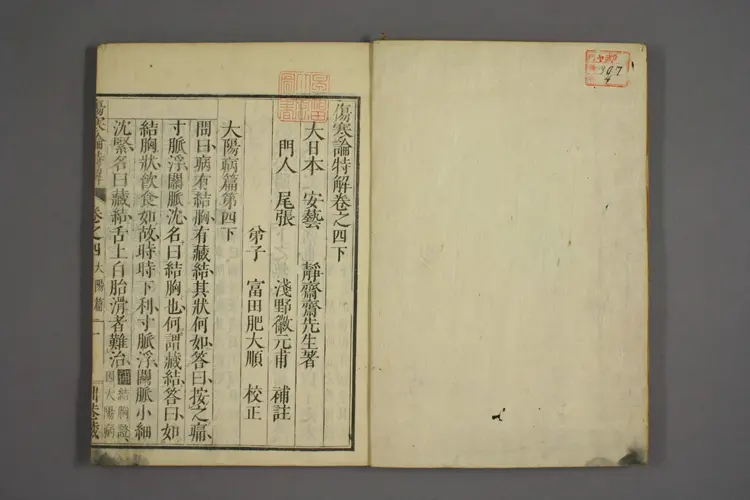 傷寒論特解卷之四下
大日本 安藝 靜齋齋先生著
門人 尾張 淺野徽元甫 補註
弟子 富田肥大順 校正
太陽病篇第四下
問曰、病有結胸、有藏結、其狀何如、答曰、按之痛、
寸脈浮、關脈沈、名曰結胸也、何謂藏結、答曰、如
結胸狀、飲食如故、時時下利、寸脈浮、關脈小細
沈緊、名曰藏結、舌上白胎滑者、難治、
結胸證
因太陽病
傷寒論特解 卷之四 太陽篇 一
907